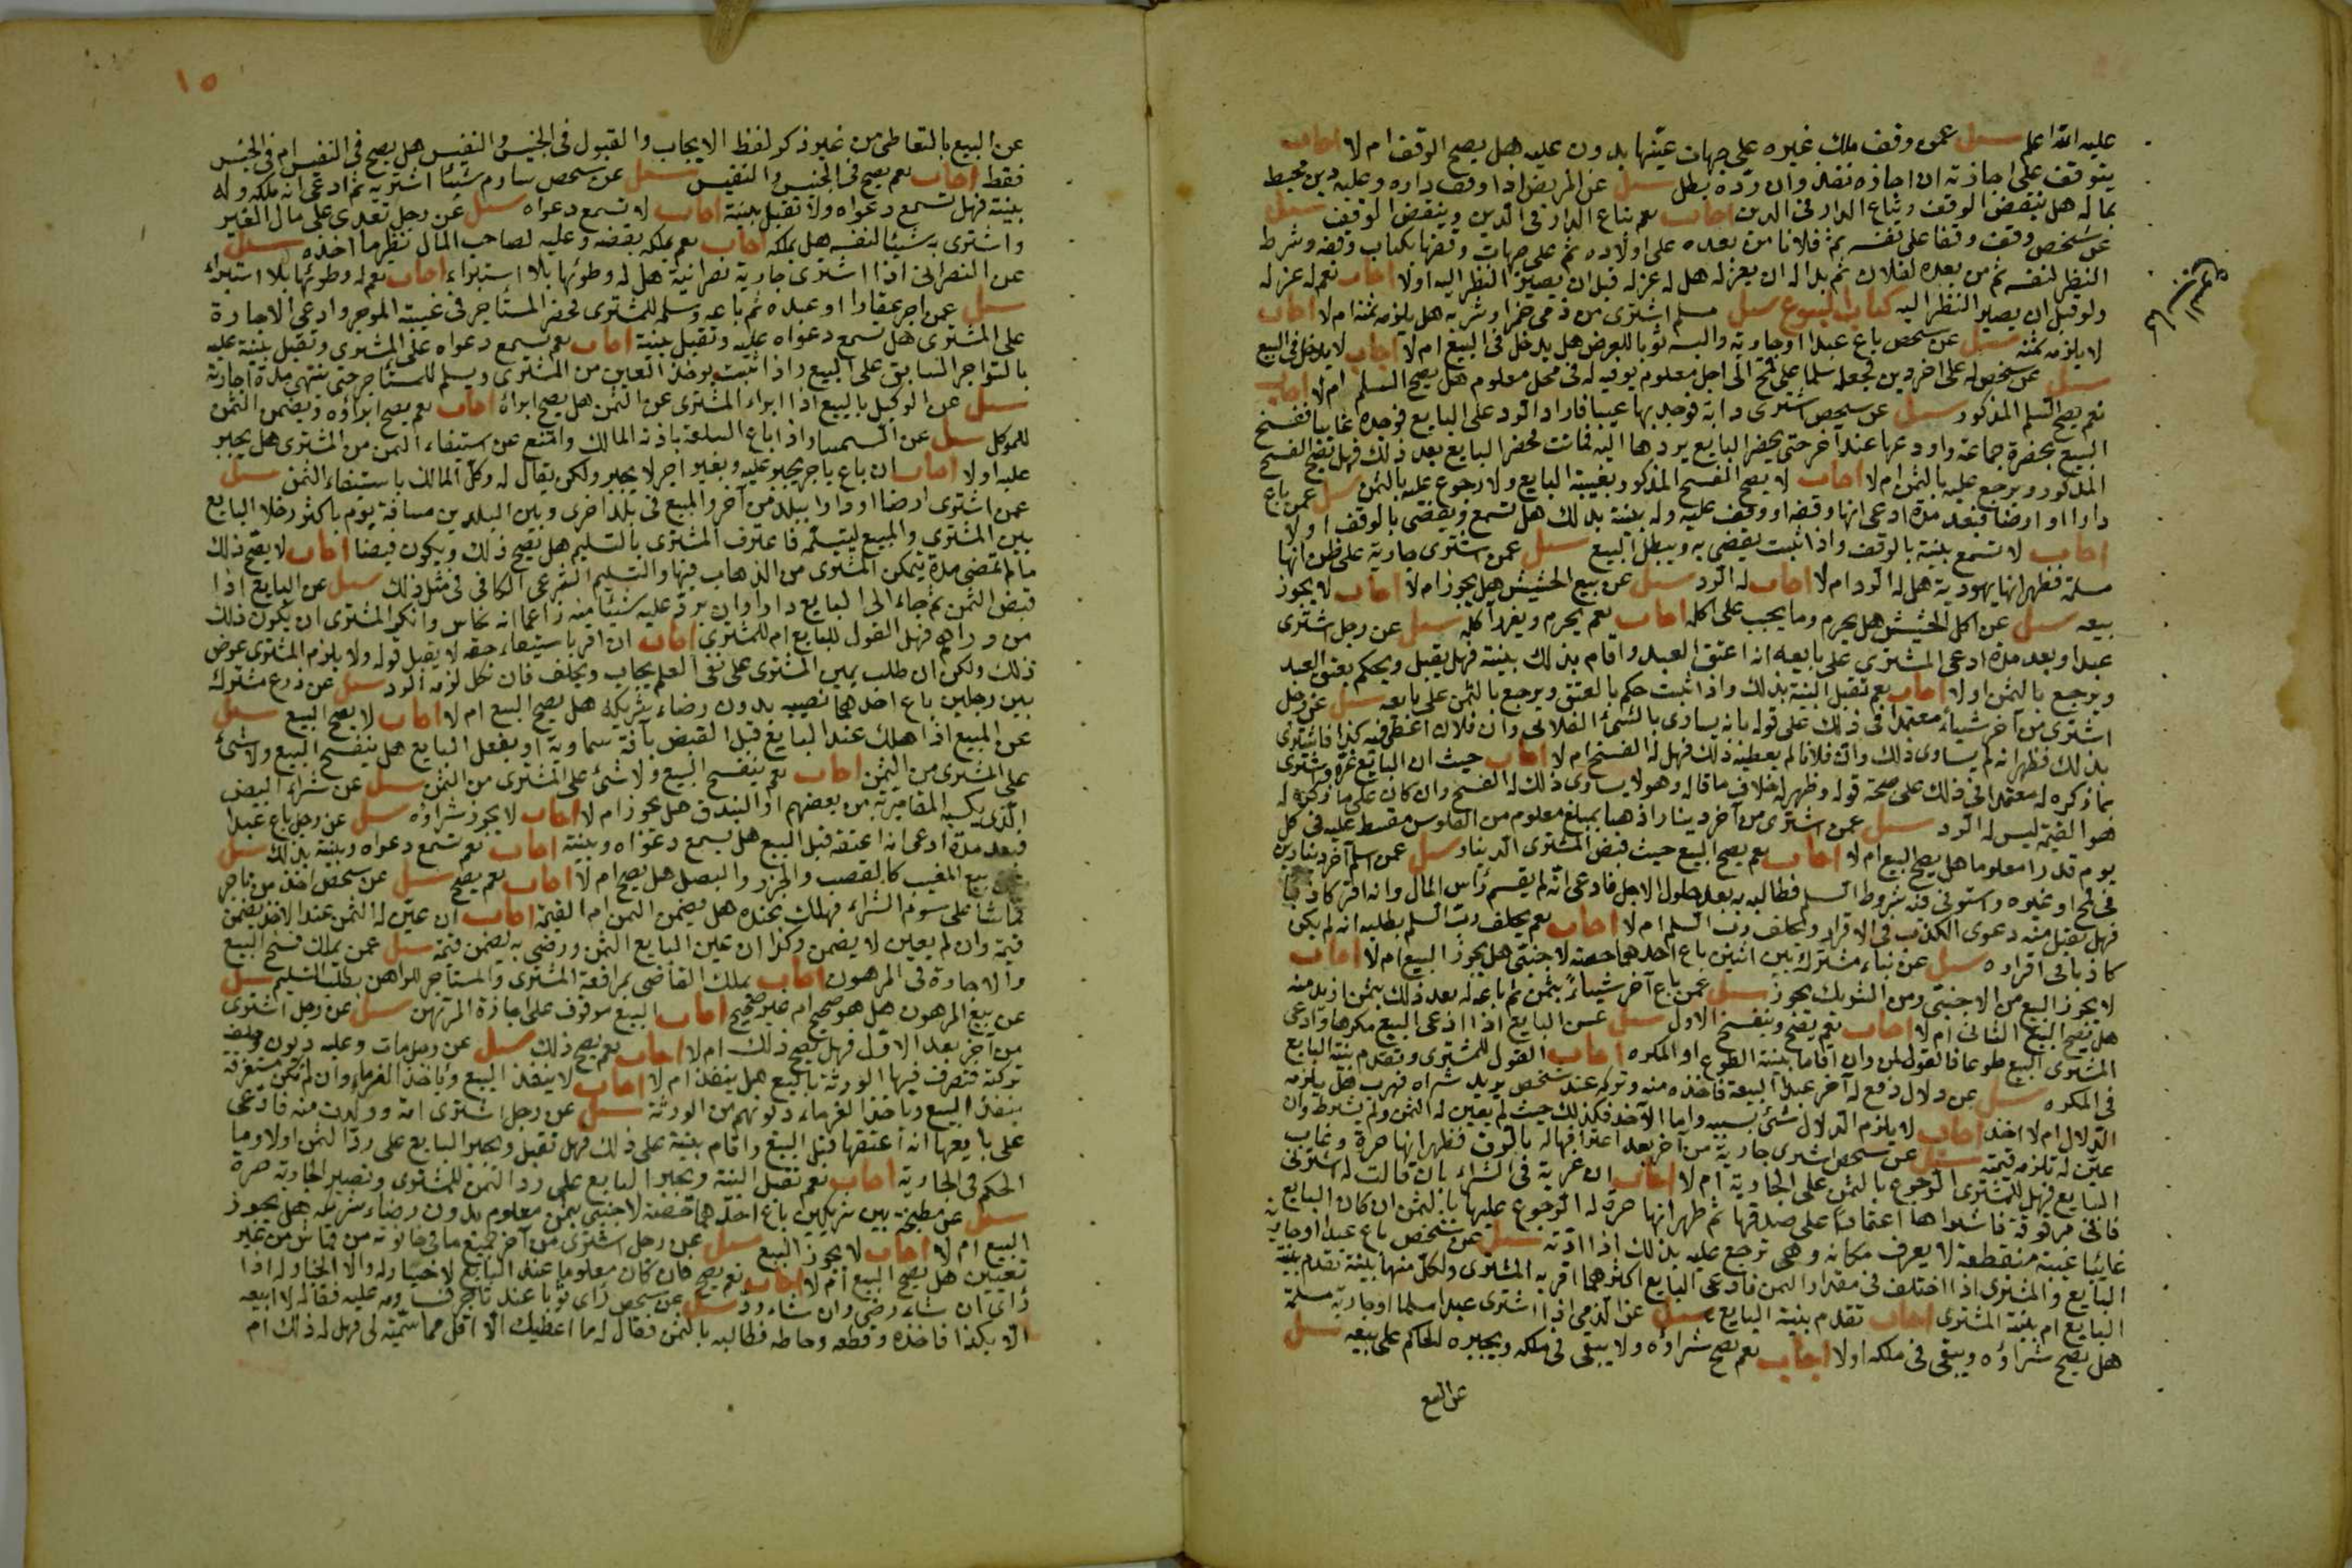 عليه الله اعلم سئل عمن وقف ملك غيره على جهات عينها بدون عليه هل يصح الوقف ام لا اجاب
يتوقف على اجازته ان اجازه نفذ وان رده بطل سئل عن المريض اذا وقف داره وعليه دين محيط
بماله هل ينقض الوقف وتباع الدار في الدين اجاب نعم تباع الدار في الدين وينقض الوقف سئل
عن شخص وقف وقفا على نفسه ثم فلانا من بعده على اولاده ثم على جهات وقفها بكتاب وقفه وشرط
النظر لنفسه ثم من بعده لفلان ثم بدا له ان يعزله هل له عزله قبل ان يصير النظر اليه اولا اجاب نعم له عزله
ولو قبل ان يصير النظر اليه كتاب البيوع سئل مسلم اشترى من ذمي خمرا وشربه هل يلزمه ثمنه ام لا اجاب
لا يلزمه ثمنه سئل عن شخص باع عبدا او جارية والبسه ثوبا للعرض هل يدخل في البيع ام لا اجاب لا يدخل في البيع
سئل عن شخص له على اخر دين فجعله سلما على قمح الى اجل معلوم يوفيه له في محل معلوم هل يصح السلم ام لا اجاب
نعم يصح السلم المذكور سئل عن شخص اشترى دابة فوجد بها عيبا فاراد الرد على البايع فوجده غايبا ففسخ
البيع بحضرة جماعة واودعها عند آخر حتى يحضر البايع يردها اليه فماتت فحضر البايع بعد ذلك فهل يصح الفسخ
المذكور ويرجع عليه بالثمن ام لا اجاب لا يصح الفسخ المذكور بغيبة البايع ولا رجوع عليه بالثمن سئل عمن باع
دارا او ارضا فبعد مدة ادعى انها وقفه او وقف عليه وله بينة بذلك هل تسمع ويقضى بالوقف اولا
اجاب لا تسمع بينة بالوقف واذا ثبت يقضى به ويبطل البيع سئل عمن اشترى جارية على ظن انها
مسلمة فظهر انها يهودية هل له الرد ام لا اجاب له الرد سئل عن بيع الحشيش هل يجوز ام لا اجاب لا يجوز
بيعه سئل عن اكل الحشيش هل يحرم وما يجب على اكله اجاب نعم يحرم ويعزر آكله سئل عن رجل اشترى
عبدا وبعد مدة ادعى المشتري على بايعه انه اعتق العبد واقام بذلك بينة فهل يقبل ويحكم بعتق العبد
ويرجع بالثمن اولا اجاب نعم تقبل البينة بذلك واذا ثبت حكم بالعتق ويرجع بالثمن على بايعه سئل عن رجل
اشترى من آخر شيئا معتمدا في ذلك على قوله بانه يساوى بالشئ الفلاني وان فلان اعطى فيه كذا فاشترى
بذلك فظهر انه لم يساوى ذلك وان فلانا لم يعطيه ذلك فهل له الفسخ ام لا اجاب حيث ان البايع غره واشترى
بما ذكره له معتمدا في ذلك على صحة قوله وظهر له خلاف ما قاله وهو لا يساوى ذلك له الفسخ وان كان على ما ذكره له
هو القيمة ليس له الرد سئل عمن اشترى من آخر دينارا ذهبا بمبلغ معلوم من الفلوس مقسط عليه في كل
يوم قدرا معلوما هل يصح البيع ام لا اجاب نعم يصح البيع حيث قبض المشترى الدينار سئل عمن اسلم آخر دينارين
في قمح او غيره واستوفى فيه شروط السلم فطالبه به بعد حلول الاجل فادعى انه لم يقسم رأس المال وانه اقر كاذبا
فهل يقبل منه دعوى الكذب في الاقرار ويحلف رب السلم ام لا اجاب نعم يحلف رب السلم بطلبه انه لم يكن
كاذبا في اقراره سئل عن بناء مشترك بين اثنين باع احدهما حصته لاجنبي هل يجوز البيع ام لا اجاب
لا يجوز البيع من الاجنبي ومن الشريك يجوز سئل عمن باع آخر شيئا بثمن ثم باعه له بعد ذلك بثمن ازيد منه
هل يصح البيع الثاني ام لا اجاب نعم يصح وينفسخ الاول سئل عن البايع اذا ادعى البيع مكرها وادعى
المشترى البيع طوعا فالقول لمن وان اقاما بينة الطوع او المكره اجاب القول للمشترى وتقدم بينة البايع
في المكره سئل عن دلال دفع له آخر عبدا لبيعه فاخذه منه وتركه عند شخص يريد شراه فهرب هل يلزم
الدلال ام لا اخذ اجاب لا يلزم الدلال شئ بسببه واما الآخذ فكذلك حيث لم يعين له الثمن ولم يشرط وان
عين له تلزمه قيمته سئل عن شخص اشترى جارية من آخر بعد اعترافها له بالرق فظهر انها حرة وغاب
البايع فهل للمشترى الرجوع بالثمن على الجارية ام لا اجاب ان غرته في الشراء بان قالت له اشترنى
فانى مرقوقة فاشتراها اعتمادا على صدقها ثم ظهر انها حرة له الرجوع عليها بالثمن ان كان البايع
غايبا غيبة منقطعة لا يعرف مكانه وهي ترجع عليه بذلك اذا ادته سئل عن شخص باع عبدا او جارية
البايع والمشترى اذا اختلف في مقدار الثمن فادعى البايع اكثر مما اقر به المشترى ولكل منهما بينة تقدم بينة
البايع ام بينة المشترى اجاب تقدم بينة البايع سئل عن الذمي اذا اشترى عبدا مسلما او جارية مسلمة
هل يصح شراؤه ويبقى في ملكه اولا اجاب نعم يصح شراؤه ولا يبقى في ملكه ويجبره الحاكم على بيعه سئل
عن البيع
١٥
عن البيع بالتعاطى من غير ذكر لفظ الايجاب والقبول في الخسيس والنفيس هل يصح في النفيس ام في الخسيس
فقط اجاب نعم يصح في الخسيس والنفيس سئل عن شخص ساوم شيئا اشتريه ثم ادعى انه ملكه وله
بينة فهل تسمع دعواه ولا تقبل بينة اجاب لا تسمع دعواه سئل عن رجل تعدى على مال الغير
واشترى به شيئا لنفسه هل يملكه اجاب نعم يملكه بقبضه وعليه لصاحب المال نظير ما اخذه سئل
عن النصراني اذا اشترى جارية نصرانية هل له وطوئها بلا استبراء اجاب نعم له وطوئها بلا استبراء
سئل عمن اجر عقارا او عبده ثم باعه وسلمه للمشترى فحضر المستأجر في غيبة الموجر وادعى الاجارة
على المشترى هل تسمع دعواه عليه وتقبل بينة اجاب نعم تسمع دعواه على المشترى وتقبل بينة عليه
بالتواجر السابق على البيع واذا ثبت يوخذ العين من المشترى ويسلم للمستأجر حتى تنتهى مدة اجارته
سئل عن الوكيل بالبيع اذا ابراء المشترى عن الثمن هل يصح ابراؤه اجاب نعم يصح ابراؤه ويضمن الثمن
للموكل سئل عن السمسار اذا باع السلعة باذنه المالك وامتنع عن استيفاء الثمن من المشترى هل يجبر
عليه اولا اجاب ان باع باجر يجبر عليه وبغير اجر لا يجبر ولكن يقال له وكل المالك باستيفاء الثمن سئل
عمن اشترى ارضا او دارا ببلد من آخر والمبيع في بلد اخرى وبين البلدين مسافة يوم باكثر وخلا البايع
بين المشترى والمبيع ليتسلمه فاعترف المشترى بالتسليم هل يصح ذلك ويكون قبضا اجاب لا يصح ذلك
ما لم تمضى مدة يتمكن المشترى من الذهاب فيها والتسليم الشرعي الكافي في مثل ذلك سئل عن البايع اذا
قبض الثمن ثم جاء الى البايع دارا وان يرد عليه شيئا منه زاعما انه نحاس وانكر المشترى ان يكون ذلك
من دراهم فهل القول للبايع ام للمشترى اجاب ان اقر باستيفاء حقه لا يقبل قوله ولا يلزم المشترى عوض
ذلك ولكن ان طلب يمين المشترى على نفى العلم يجاب ويحلف فان نكل لزمه الرد سئل عن زرع مشترك
بين رجلين باع احدهما نصيبه بدون رضاء شريكه هل يصح البيع ام لا اجاب لا يصح البيع سئل
عن المبيع اذا هلك عند البايع قبل القبض بآفة سماوية او بفعل البايع هل ينفسخ البيع ولا شئ
على المشترى من الثمن اجاب نعم ينفسخ البيع ولا شئ على المشترى من الثمن سئل عن شراء البيض
الذي يكسبه المقامرية من بعضهم او البندق هل يجوز ام لا اجاب لا يجوز شراؤه سئل عن رجل باع عبدا
فبعد مدة ادعى انه اعتقه قبل البيع هل يسمع دعواه وبينة اجاب نعم تسمع دعواه وبينة بذلك سئل
عن بيع المغيب كالقصب والجزر والبصل هل يصح ام لا اجاب نعم يصح سئل عن شخص اخذ من تاجر
قماشا على سوم الشراء فهلك عنده هل يضمن الثمن ام القيمة اجاب ان عين له الثمن عند الاخذ يضمن
قيمة وان لم يعين لا يضمن وكذا ان عين البايع الثمن ورضى به يضمن قيمة سئل عمن يملك فسخ البيع
والاجارة في المرهون اجاب يملك القاضي بمرافعة المشترى والمستأجر للراهن بطلب التسليم سئل
عن بيع المرهون هل هو صحيح ام غير صحيح اجاب البيع موقوف على اجازة المرتهن سئل عن رجل اشترى
من آخر بعد الاول فهل يصح ذلك ام لا اجاب نعم يصح ذلك سئل عن رجل مات وعليه ديون وخلف
تركة فتصرف فيها الورثة بالبيع هل ينفذ ام لا اجاب لا ينفذ البيع وياخذ الغرماء وان لم تكن مستغرقة
ينفذ البيع وياخذ الغرماء ديونهم من الورثة سئل عن رجل اشترى امة وولدت منه فادعى
على بايعها انه اعتقها قبل البيع واقام بينة على ذلك فهل تقبل ويجبر البايع على رد الثمن اولا وما
الحكم في الجارية اجاب نعم تقبل البينة ويجبر البايع على رد الثمن للمشترى وتصير الجارية حرة
سئل عن مطبخة بين شريكين باع احدهما حصته لاجنبي بثمن معلوم بدون رضاء شريكه هل يجوز
البيع ام لا اجاب لا يجوز البيع سئل عن رجل اشترى من آخر جميع ما في حانوته من قماش من غير
تعيين هل يصح البيع ام لا اجاب نعم يصح فان كان معلوما عند البايع لا خيار له والا الخيار له اذا
رأى ان شاء رضى وان شاء رد سئل عن شخص رأى ثوبا عند تاجر فساومه عليه فقال له لا ابيعه
الا بكذا فاخذه وقطعه وخاطه فطالبه بالثمن فقال له ما اعطيك الا اقل مما سميته لي فهل له ذلك ام